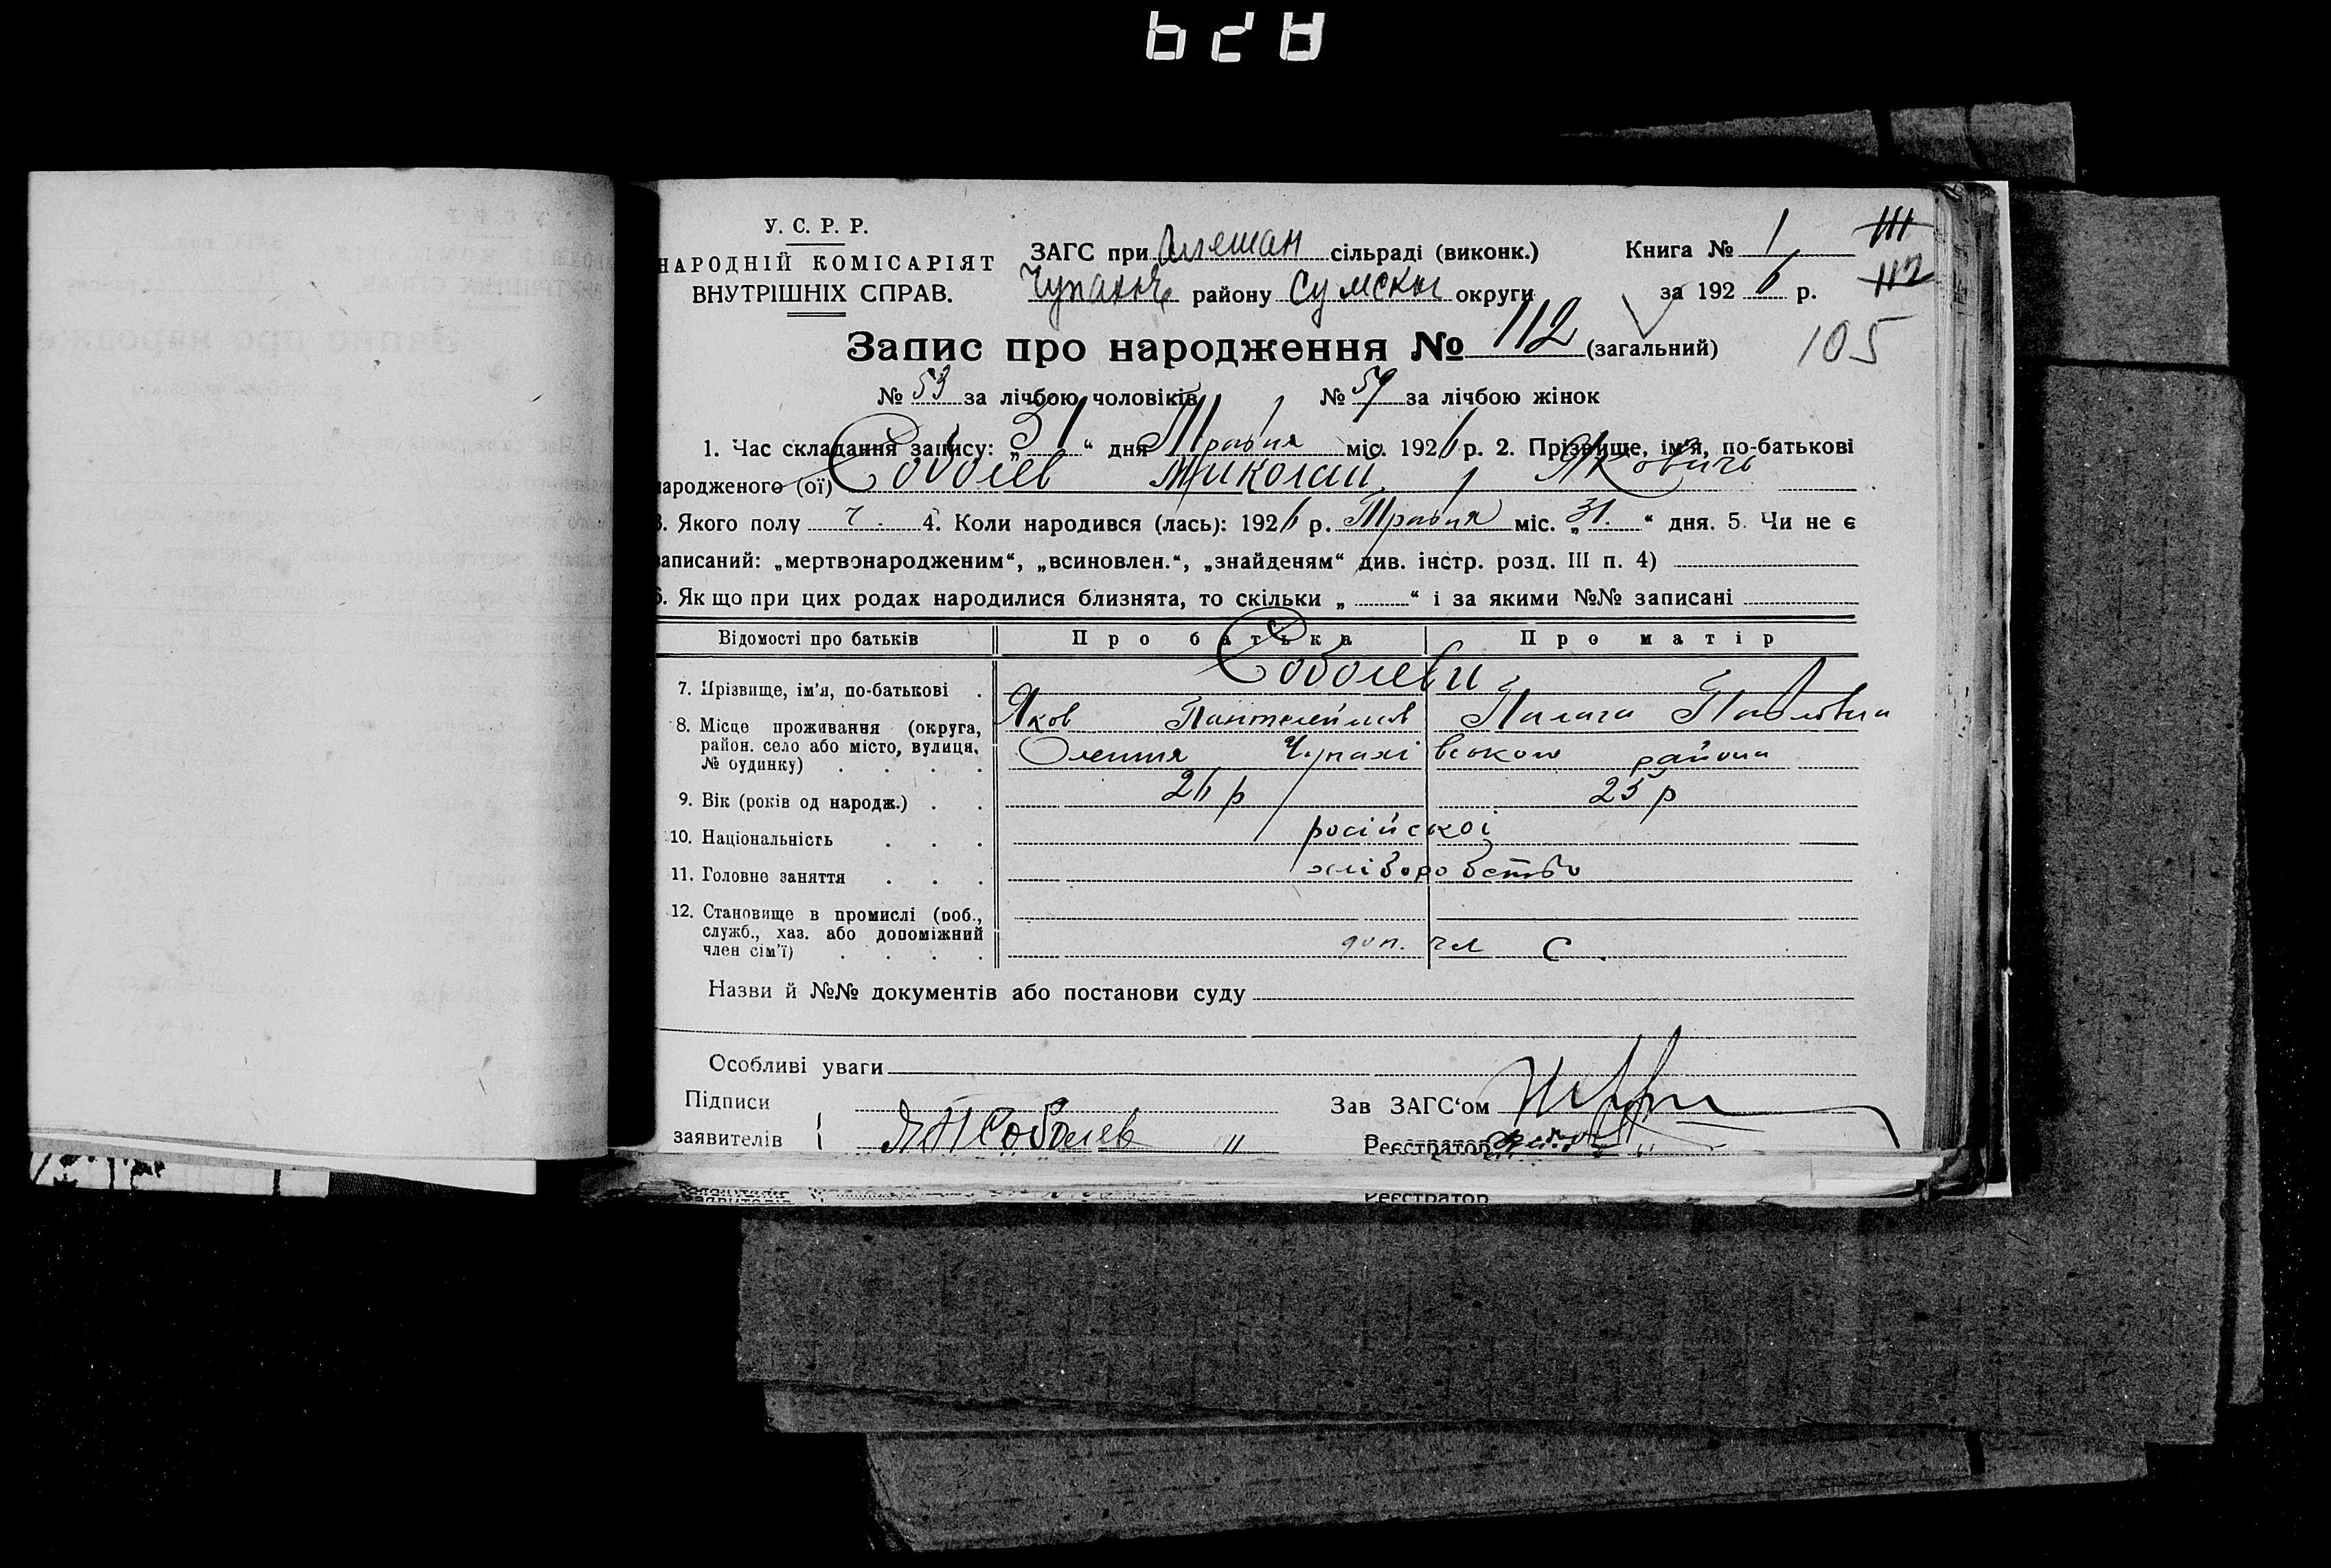 У. С. Р. Р.
НАРОДНІЙ КОМІСАРІЯТ
ВНУТРІШНІХ СПРАВ.
ЗАГС при сільраді (виконк.)
району Сумськ округи
Книга № 1
за 1926 р.
111
112
105
Запис про народження № 112 (загальний)
№ 53 за лічбою чоловіків № 59 за лічбою жінок
1. Час складання запису: „31“ дня Травня міс. 1926 р. 2. Прізвище, ім'я, по-батькові
народженого (ої) Соболев Миколай Якович
3. Якого полу ч. 4. Коли народився (лась): 1926 р. Травня міс. „31.“ дня. 5. Чи не є
записаний: „мертвонародженим“, „всиновлен.“, „знайденям“ див. інстр. розд. III п. 4)
6. Як що при цих родах народилися близнята, то скільки „ “ і за якими №№ записані
Відомості про батьків Про батька Про матір
7. Прізвище, ім'я, по-батькові Соболеви
Яков Пантелеймов Палага Павловна
8. Місце проживання (округа,
район. село або місто, вулиця,
№ будинку) Олешня Чупахівського района
9. Вік (років од народж.) 26 р 25 р
10. Національність російскоі
11. Головне заняття хліборобство
12. Становище в промислі (роб.,
служб., хаз. або допоміжний
член сім'ї) доп. чл С.
Назви й №№ документів або постанови суду
Особливі уваги
Підписи
заявителів ЯПСоболев
Зав ЗАГС‘ом
Реєстратор
Реєстратор